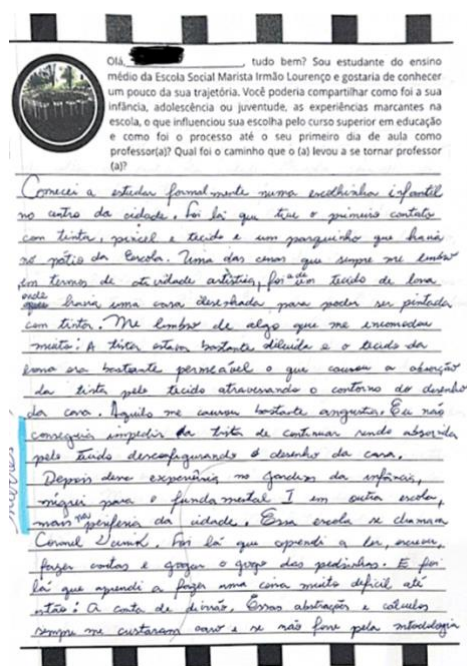 Olá, , tudo bem? Sou estudante do ensino
médio da Escola Social Marista Irmão Lourenço e gostaria de conhecer
um pouco da sua trajetória. Você poderia compartilhar como foi a sua
infância, adolescência ou juventude, as experiências marcantes na
escola, o que influenciou sua escolha pelo curso superior em educação
e como foi o processo até o seu primeiro dia de aula como
professor(a)? Qual foi o caminho que o (a) levou a se tornar professor
(a)?
Comecei a estudar formalmente numa escolhinha infantil
no centro da cidade. Foi lá que tive o primeiro contato
com tinta, pincel e tecido e um parquinho que havia
no pátio da Escola. Uma das cenas que sempre me lembro
em termos de atividade artística, foi a de um tecido de lona
onde havia uma casa desenhada para poder ser pintada
com tinta. Me lembro de algo que me incomodou
muito: A tinta estava bastante diluída e o tecido da
lona era bastante permeável o que causou a absorção
da tinta pelo tecido atravessando o contorno do desenho
da casa. Aquilo me causou bastante angustia. Eu não
conseguia impedir a tinta de continuar sendo absorvida
pelo tecido desconfigurando o desenho da casa.
Depois dessa experiência no jardim da infância,
migrei para o fundamental I em outra escola,
mais na periferia da cidade. Essa escola se chamava
Coronel . Foi lá que aprendi a ler, escrever,
fazer contas e o jogo das pedrinhas. E foi
lá que aprendi a fazer uma coisa muito difícil até
então: A conta de divisão. Essas abstrações e cálculos
sempre me custaram caro e se não fosse pela metodologia